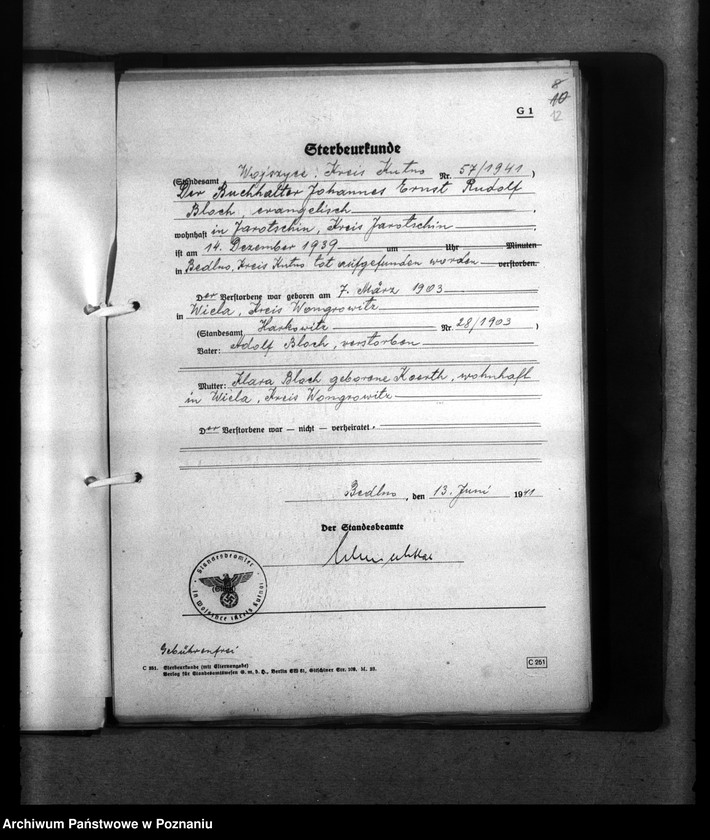 8
10
12
G 1
Sterbeurkunde
(Standesamt Wojszyce, Kreis Kutno Nr. 57/1941)
Der Buchhalter Johannes Ernst Rudolf
Bloch, evangelisch,
wohnhaft in Jarotschin, Kreis Jarotschin
ist am 14. Dezember 1939 um Uhr Minuten
in Bedlno, Kreis Kutno tot aufgefunden worden verstorben.
Der Verstorbene war geboren am 7. März 1903
in Wiela, Kreis Wongrowitz
(Standesamt Harkowitz Nr. 28/1903)
Vater: Adolf Bloch, verstorben
Mutter: Klara Bloch geborene Koerth, wohnhaft
in Wiela, Kreis Wongrowitz
Der Verstorbene war — nicht — verheiratet.
Bedlno, den 13. Juni 1941
Der Standesbeamte
Standesbeamter
Gebührenfrei
C 251. Sterbeurkunde (mit Elternangabe)
Verlag für Standesamtswesen G. m. b. H., Berlin SW 61, Gitschiner Str. 109.
C 251
Archiwum Państwowe w Poznaniu